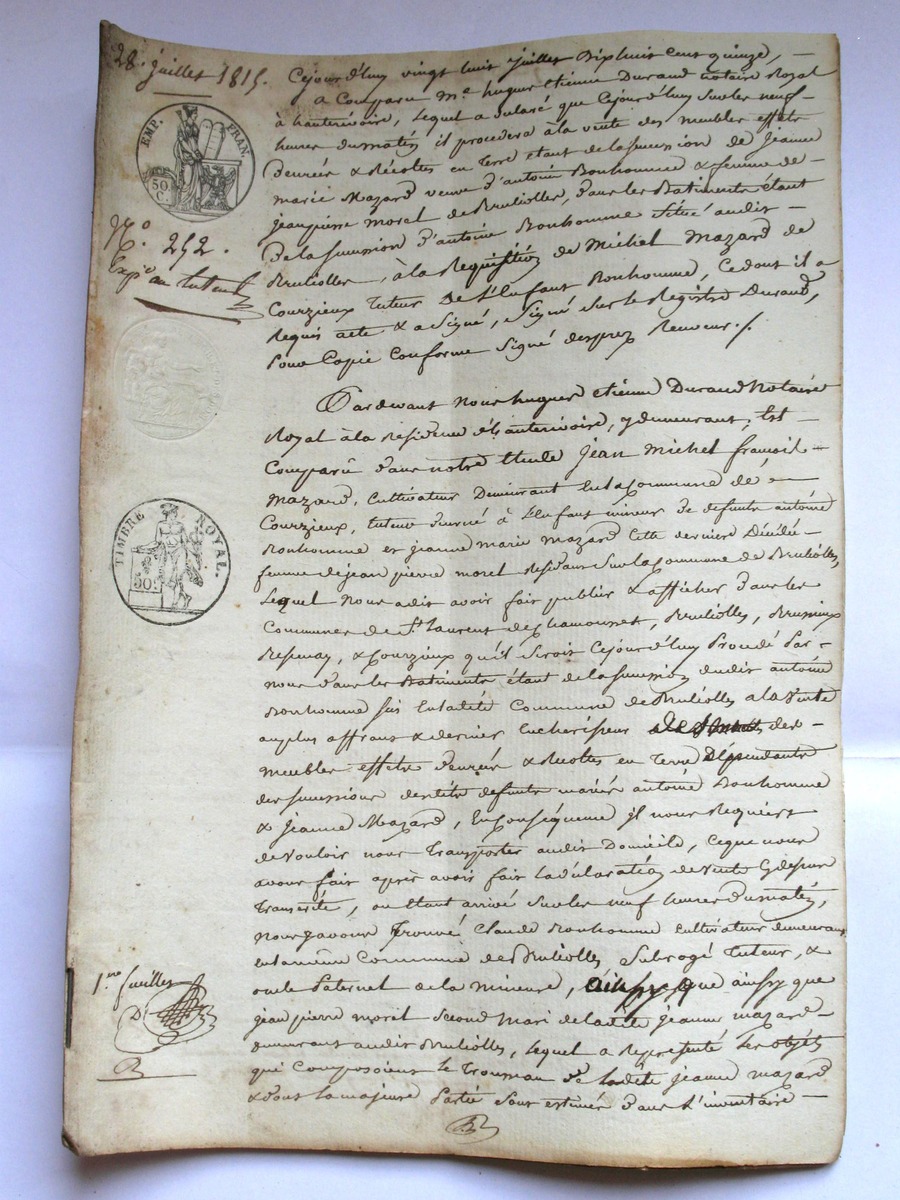 28. juillet 1815.
Cejourd'huy vingt huit juillet Dixhuit cent quinze,
a Comparu Me hugues Etienne Durand notaire Royal
à hauterivoire, Lequel a declaré que Cejourd'huy sur les neuf
heures du matin il procedera à la vente des meubles effets
denrées & Récoltes en terre etant de la succession de Jeanne
marie Mazard veuve d'antoine Bonhomme & femme de
jean pierre morel de Brullioles, dans les Batiments étant
De la succession d'antoine Bonhomme situé audit
Brullioles, à la Requisition de Michel Mazard de
Courzieux tuteur De L'Enfant Bonhomme, Ce dont il a
Requis acte & a Signé, Signé sur le Registre Durand,
Pour Copie Conforme Signé desprez Receveur ./.
EMP. FRAN.
50 C.
No. 252.
Expé au tuteur
TIMBRE ROYAL.
50
Pardevant Nous hugues etienne Durand Notaire
Royal à la Residence d'hauterivoire, y demeurant, Est
Comparu dans notre Etude jean michel françois
Mazard, Cultivateur Demeurant en la Commune de
Courzieux, tuteur à L'enfant mineur de defunts antoine
Bonhomme et jeanne marie mazard Cette derniere Décédée
femme de jean pierre morel Residant sur la Commune de Brullioles,
Lequel Nous a dit avoir fait publier & afficher dans les
Communes de St Laurent de Chamousset, Brullioles, Brussieux
Bessenay, & Courzieux qu'il seroit Cejourd'huy Procédé Par
nous dans les Batiments étant de la succession dudit antoine
Bonhomme sis en ladite Commune de Brullioles a la Vente
au plus offrant & dernier Encherisseur des
meubles effets denrées & Récoltes en Terre Dépendants
des successions desdits defunts mariés antoine Bonhomme
& Jeanne Mazard, En Conséquence il nous Requiert
de vouloir nous Transporter audit Domicile, Ce que nous
avons fait après avoir fait la déclaration de vente Cy dessus
Transcrite, ou Etant arrivé sur les neuf heures du matin,
Nous y avons trouvé Claude Bonhomme Cultivateur demeurant
en la même Commune de Brullioles Subrogé Tuteur, &
oncle Paternel de la mineure, ainsy que
jean pierre morel second mari de ladite jeanne mazard
demeurant audit Brullioles, Lequel a Représenté Les objets
qui Composoient Le Trousseau De ladite jeanne mazard
& dont la majeure Partie sont estimés dans L'inventaire
1ere feuillet
D